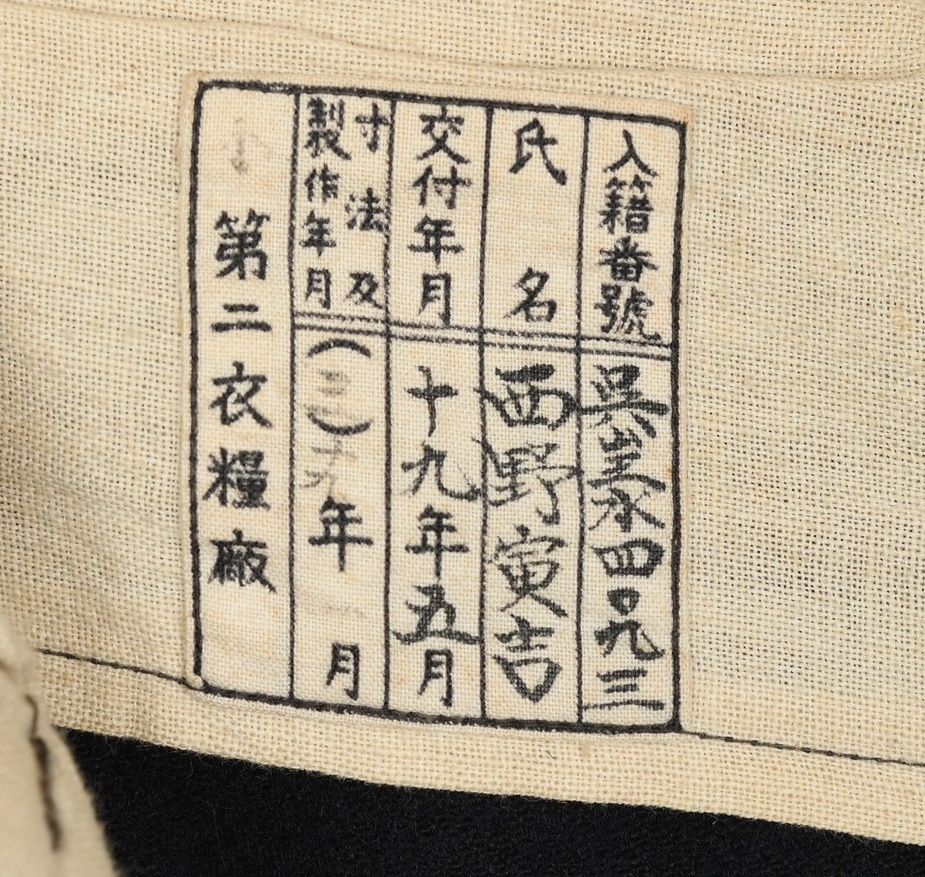 入籍番號
呉 水四〇九三
氏名
西野寅吉
交付年月
十九年五月
寸法及
製作年月
(三) 年 月
第二衣糧廠